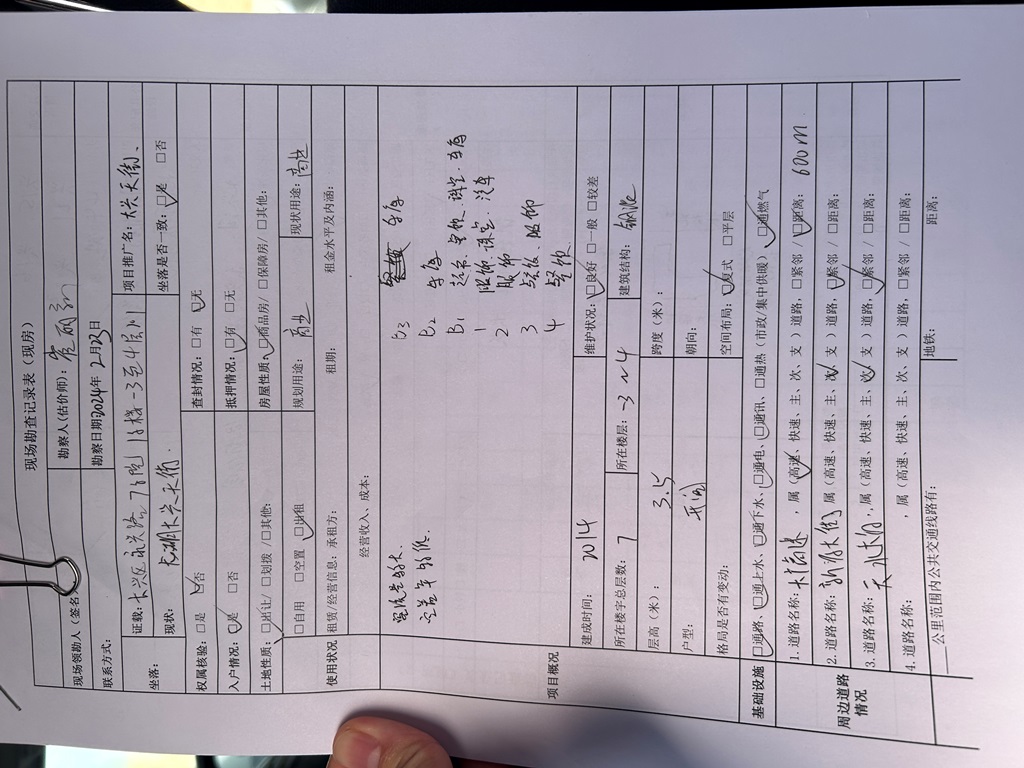 现场勘查记录表（现房）
现场领勘人（签名 勘察人(估价师):
联系方式: 勘察日期: 2024年 2月23日
坐落: 证载: 大兴区永兴路7号院1号楼-3至4层 项目推广名: 大兴天街、
现状: 龙湖大兴天街. 坐落是否一致: ☑是 □否
权属核验: □是 ☑否 查封情况: □有 ☑无
入户情况: ☑是 □否 抵押情况: ☑有 □无
土地性质: ☑出让/ □划拨 / □其他: 房屋性质: ☑商品房/ □保障房/ □其他:
使用状况 □自用 □空置 ☑出租 规划用途: 商业 现状用途: 商业
租赁/经营信息: 承租方: 租期: 租金水平及内涵:
经营收入、成本:
项目概况
B3 车库
B2 车库
B1
1 服饰. 珠宝. 汽车
2 服饰
3 餐饮、服饰
4 餐饮.
建成时间: 2014 维护状况: ☑良好 □一般 □较差
所在楼宇总层数: 7 所在楼层: -3~4 建筑结构: 钢混
层高（米）: 3.5 跨度（米）:
户型: 开间 朝向:
格局是否有变动: 空间布局: ☑复式 □平层
基础设施 ☑通路、☑通上水、☑通下水、☑通电、☑通讯、□通热（市政/集中供暖）、☑通燃气
周边道路情况
1. 道路名称: , 属（高速、快速、主、次、支）道路, □紧邻 / ☑距离: 600m
2. 道路名称: , 属（高速、快速、主、次、支）道路, ☑紧邻 / □距离:
3. 道路名称: , 属（高速、快速、主、次、支）道路, ☑紧邻 / □距离:
4. 道路名称: , 属（高速、快速、主、次、支）道路, □紧邻 / □距离:
公里范围内公共交通线路有: 地铁: 距离: